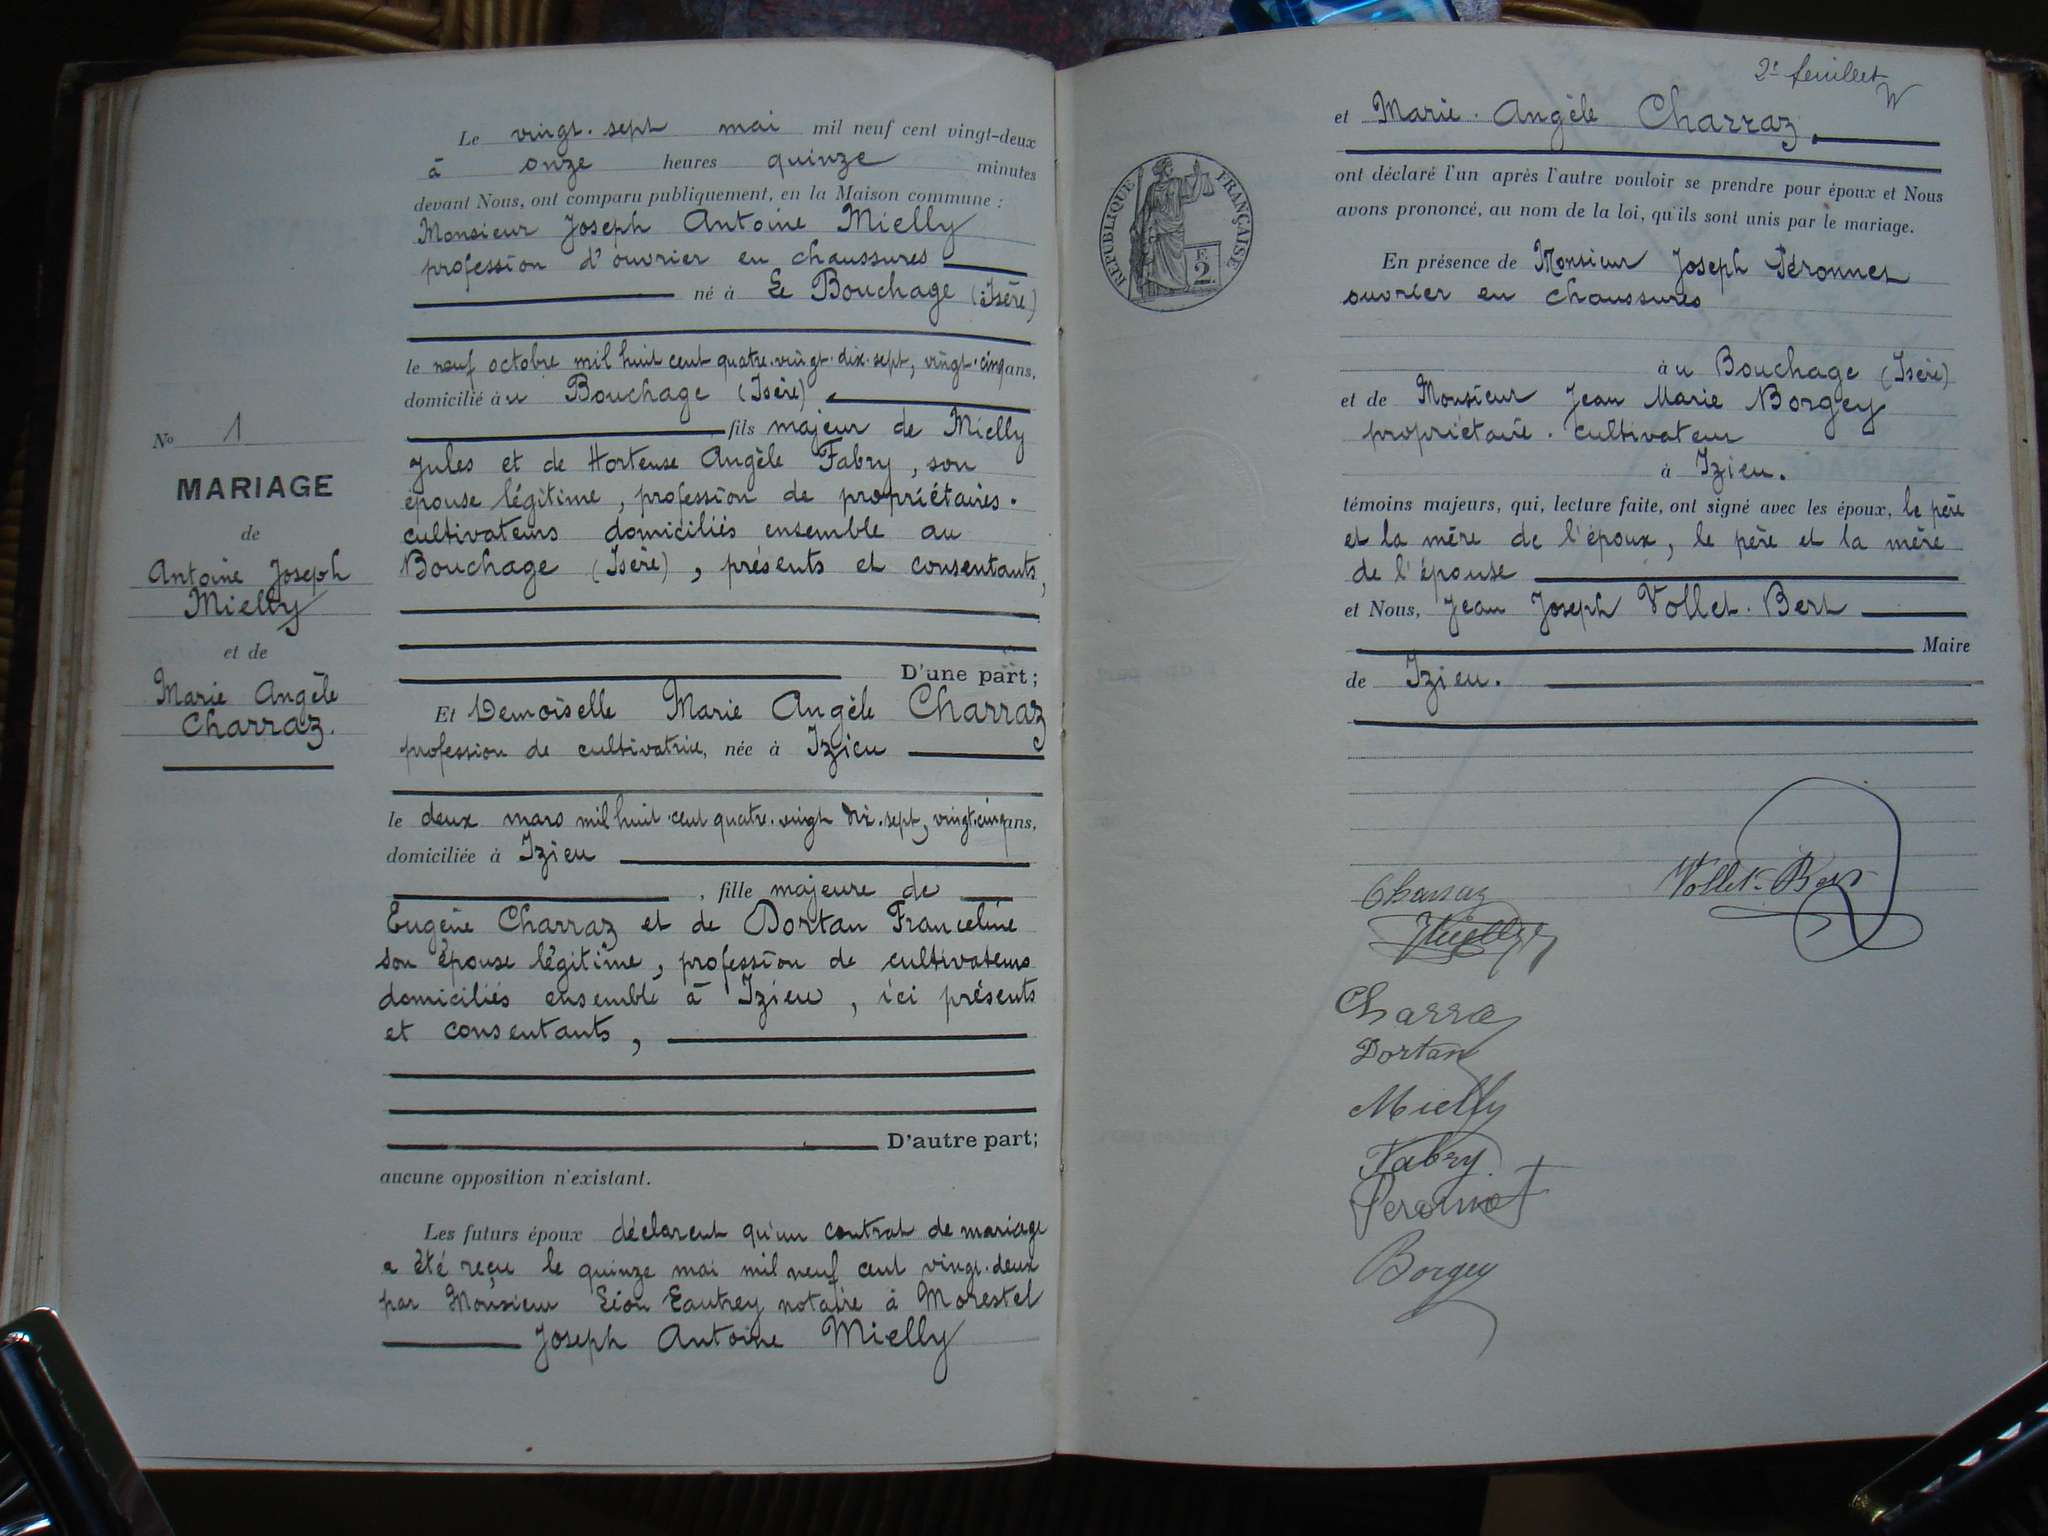 Le vingt-sept mai mil neuf cent vingt-deux
à onze heures quinze minutes
devant Nous, ont comparu publiquement, en la Maison commune :
Monsieur Joseph Antoine Mielly
profession d'ouvrier en chaussures
né à Le Bouchage (Isère)
le neuf octobre mil huit cent quatre-vingt-dix-sept, vingt-cinq ans,
domicilié à u Bouchage (Isère)
fils majeur de Mielly
Jules et de Hortense Angèle Fabry, son
épouse légitime, profession de propriétaires-
cultivateurs domiciliés ensemble au
Bouchage (Isère), présents et consentants,
D'une part ;
Et Demoiselle Marie Angèle Charraz
profession de cultivatrice, née à Izieu
le deux mars mil huit-cent quatre-vingt dix-sept, vingt-cinq ans,
domiciliée à Izieu
, fille majeure de
Eugène Charraz et de Dortan Franceline
son épouse légitime, profession de cultivateurs
domiciliés ensemble à Izieu, ici présents
et consentants,
D'autre part ;
aucune opposition n'existant.
Les futurs époux déclarent qu'un contrat de mariage
a été reçu le quinze mai mil neuf cent vingt-deux
par Monsieur Léon Lautrey notaire à Morestel
Joseph Antoine Mielly
No 1
MARIAGE
de
Antoine Joseph
Mielly
et de
Marie Angèle
Charraz.
2e feuillet
RÉPUBLIQUE FRANÇAISE
2 F.
et Marie-Angèle Charraz.
ont déclaré l'un après l'autre vouloir se prendre pour époux et Nous
avons prononcé, au nom de la loi, qu'ils sont unis par le mariage.
En présence de Monsieur Joseph Péronnet
ouvrier en chaussures
à u Bouchage (Isère)
et de Monsieur Jean Marie Borgey
propriétaire-cultivateur
à Izieu.
témoins majeurs, qui, lecture faite, ont signé avec les époux, le père
et la mère de l'époux, le père et la mère
de l'épouse
et Nous, Jean Joseph Vollet-Bert
Maire
de Izieu.
Charraz
Vollet-Bert
Mielly
Charraz
Dortan
Mielly
Fabry
Peronnet
Borgey